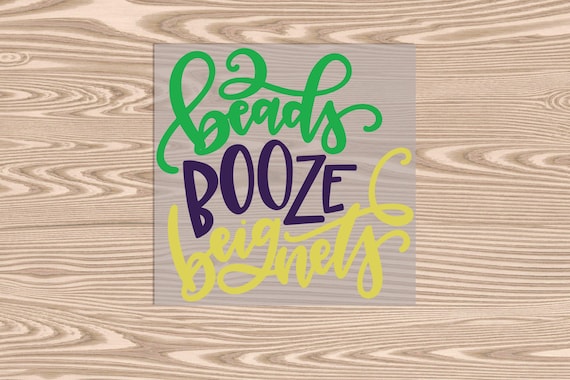 beads
BOOZE
beignets